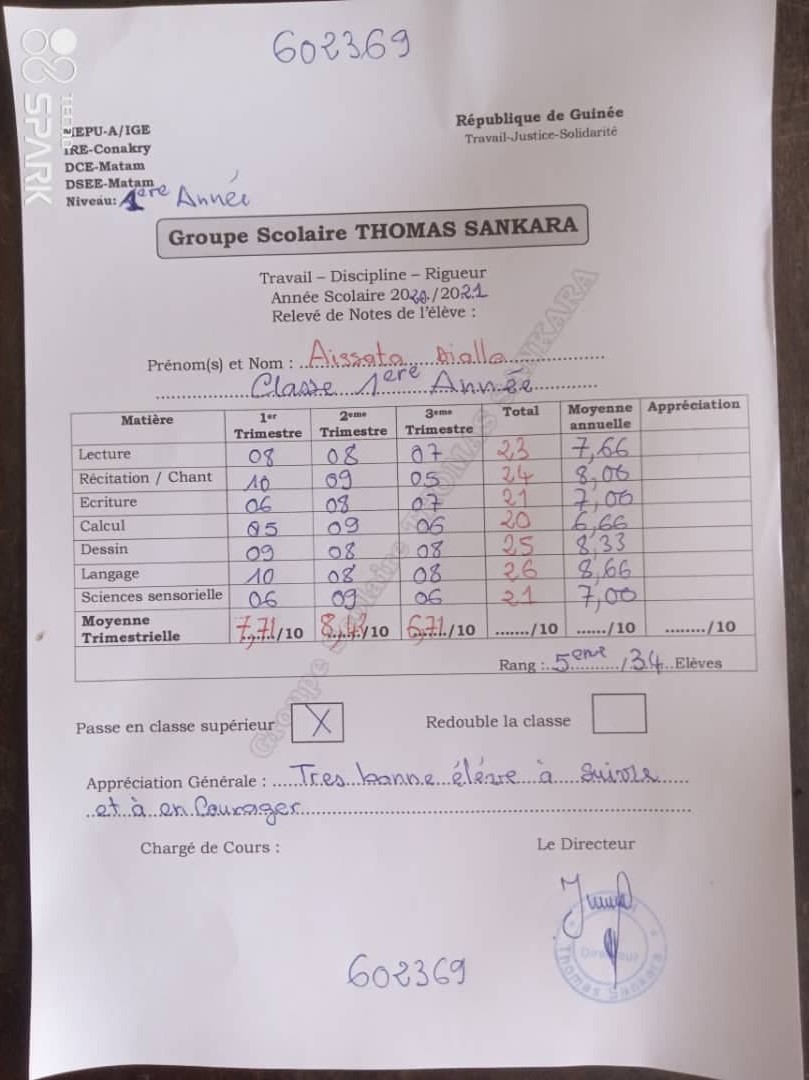 602369
MEPU-A/IGE
IRE-Conakry
DCE-Matam
DSEE-Matam
Niveau: 1ère Année
République de Guinée
Travail-Justice-Solidarité
TECNO
SPARK
Groupe Scolaire THOMAS SANKARA
Travail – Discipline – Rigueur
Année Scolaire 2020./2021
Relevé de Notes de l'élève :
Prénom(s) et Nom : Aissata Diallo
Classe 1ère Année
Matière 1er Trimestre 2eme Trimestre 3eme Trimestre Total Moyenne annuelle Appréciation
Lecture 08 08 07 23 7,66
Récitation / Chant 10 09 05 24 8,00
Ecriture 06 08 07 21 7,00
Calcul 05 09 06 20 6,66
Dessin 09 08 08 25 8,33
Langage 10 08 08 26 8,66
Sciences sensorielle 06 09 06 21 7,00
Moyenne Trimestrielle 7,71/10 /10 6,71/10 ......./10 ....../10 ......../10
Rang : 5eme /34 Elèves
Passe en classe supérieur X Redouble la classe
Appréciation Générale : Tres bonne élève à suivre
et à en Courager
Chargé de Cours :
Le Directeur
Directeur
Thomas Sankara
602369
Groupe Scolaire THOMAS SANKARA